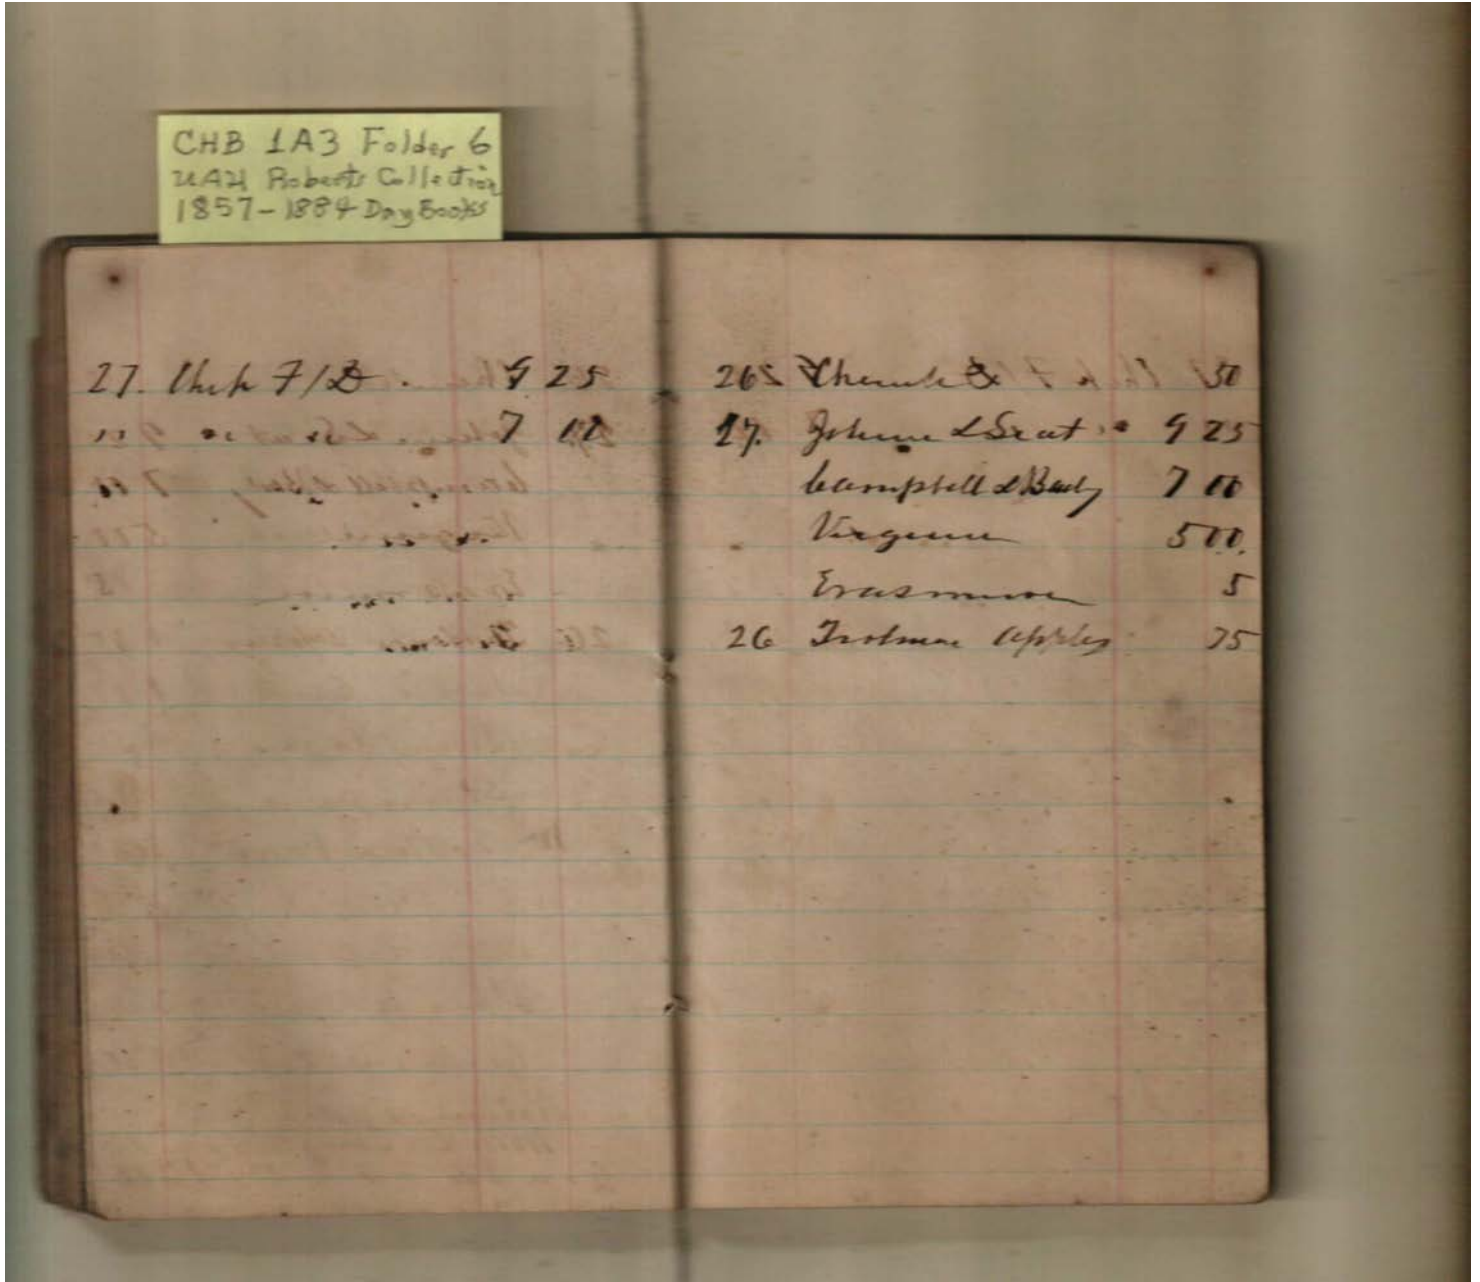 CHB 1A3 Folder 6
UAH Roberts Collection
1857-1884 Day Books
27. Chek F/D . 9 25
" " " " 7 00
26 50
27. Johnson & Scott " 9 25
Campbell & 7 00
Virginia 5 00.
Erasmus 5
26 apples 75